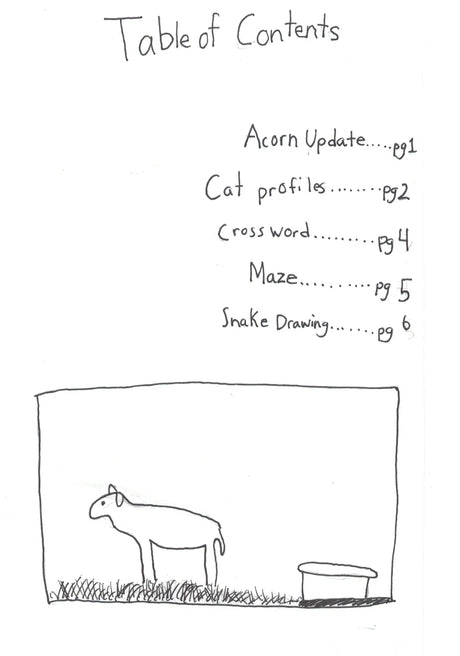 Table of Contents
Acorn Update.....pg1
Cat profiles........pg2
Crossword.........pg4
Maze..........pg 5
Snake Drawing.......pg 6